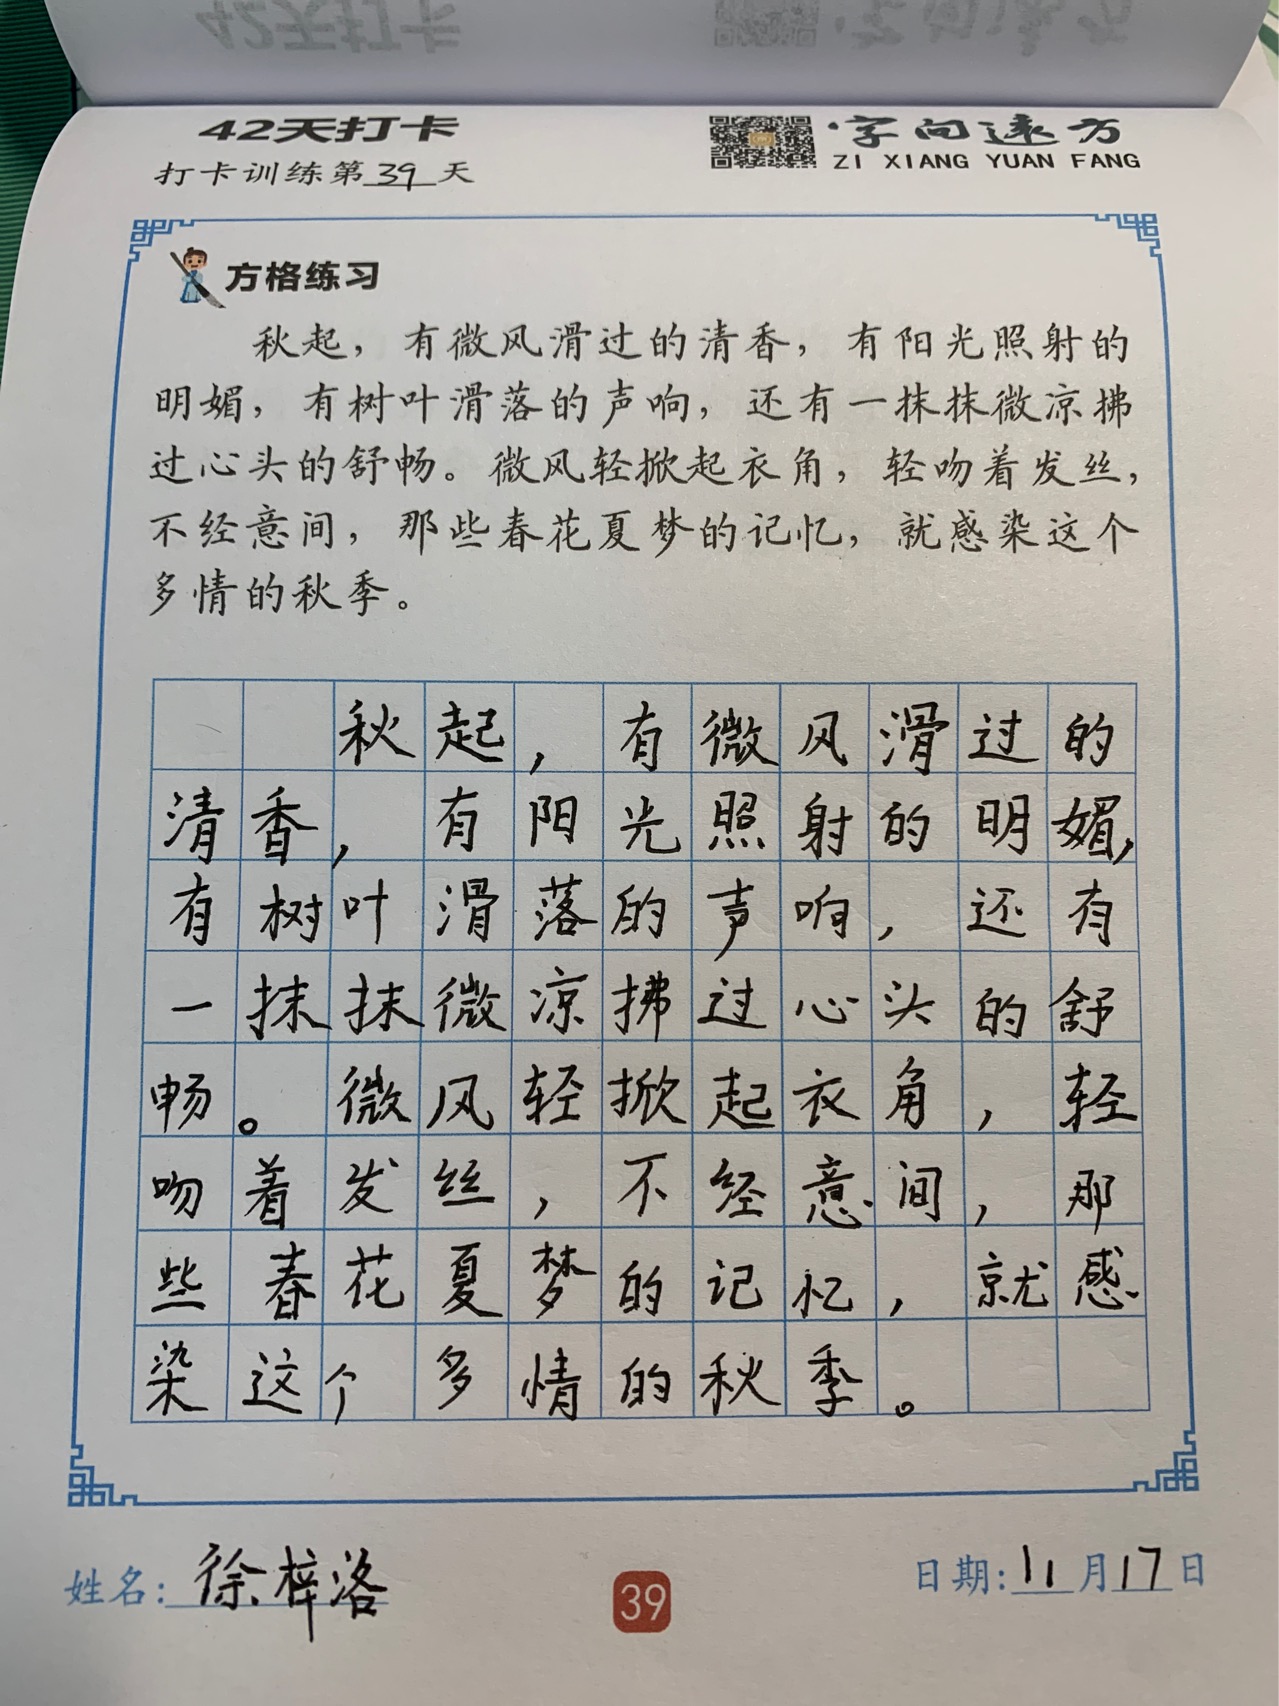 42天打卡
字向远方
ZI XIANG YUAN FANG
打卡训练第39天
方格练习
秋起，有微风滑过的清香，有阳光照射的
明媚，有树叶滑落的声响，还有一抹抹微凉拂
过心头的舒畅。微风轻掀起衣角，轻吻着发丝，
不经意间，那些春花夏梦的记忆，就感染这个
多情的秋季。
秋起，有微风滑过的
清香，有阳光照射的明媚，
有树叶滑落的声响，还有
一抹抹微凉拂过心头的舒
畅。微风轻掀起衣角，轻
吻着发丝，不经意间，那
些春花夏梦的记忆，就感
染这个多情的秋季。
姓名：徐梓洛
39
日期：11月17日